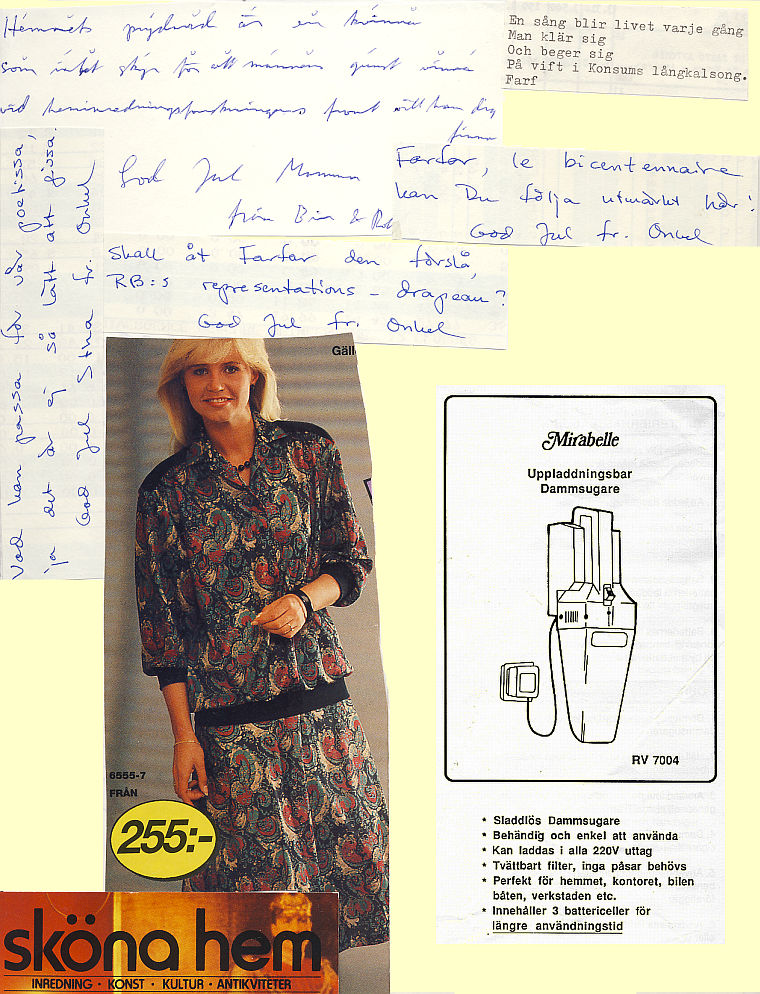 Hemmets prydnad är en kvinna
som intet skyr för att männens gunst vinna
vid heminredningsforskningens front vill hon dig
finna
God Jul Mamma
från Bin & Rob
En sång blir livet varje gång
Man klär sig
Och beger sig
På vift i Konsums långkalsong.
Farf
Farfar, le bicentennaire
kan Du följa utmärkt här!
God Jul fr. Onkel
Vad kan passa för vår poetissa,
ja det är ej så lätt att gissa.
God Jul Stina fr. Onkel
Skall åt Farfar den förslå,
RB:s representations - drapeau?
God Jul fr. Onkel
Gäll
6555-7
FRÅN
255:-
sköna hem
INREDNING • KONST • KULTUR • ANTIKVITETER
Mirabelle
Uppladdningsbar
Dammsugare
RV 7004
* Sladdlös Dammsugare
* Behändig och enkel att använda
* Kan laddas i alla 220V uttag
* Tvättbart filter, inga påsar behövs
* Perfekt för hemmet, kontoret, bilen
båten, verkstaden etc.
* Innehåller 3 battericeller för
längre användningstid